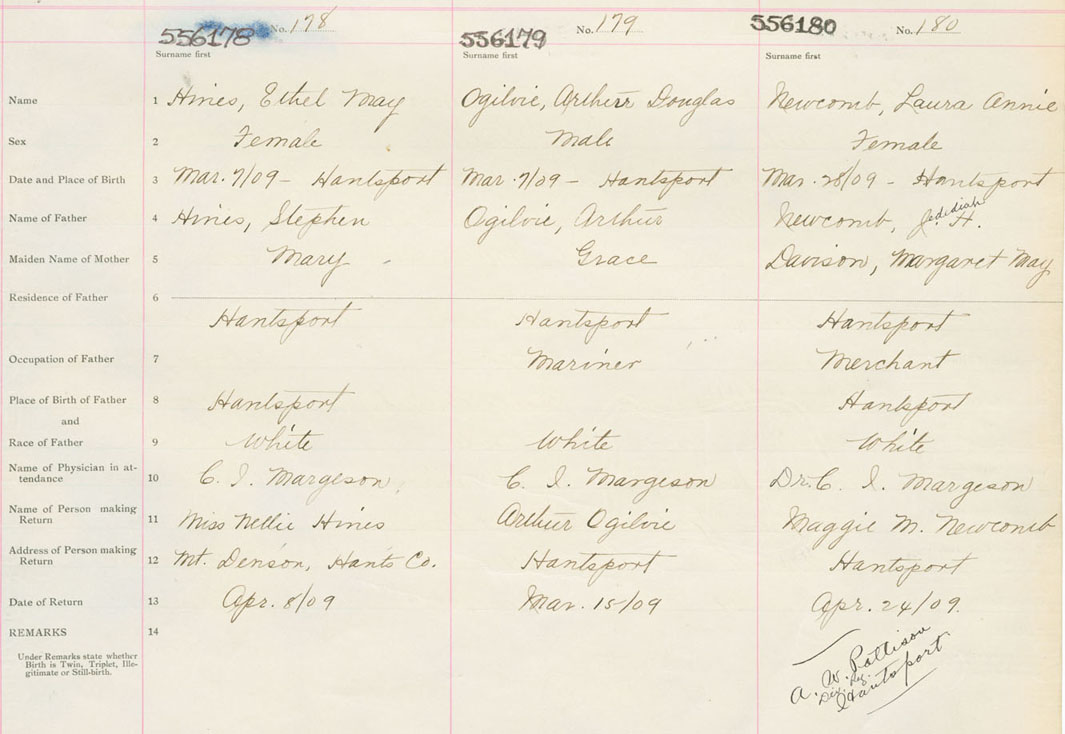 556178 No. 178 556179 No. 179 556180 No. 180
Surname first Surname first Surname first
Name 1 Hines, Ethel May Ogilvie, Arthur Douglas Newcomb, Laura Annie
Sex 2 Female Male Female
Date and Place of Birth 3 Mar. 7/09 - Hantsport Mar. 7/09 - Hantsport Mar. 28/09 - Hantsport
Name of Father 4 Hines, Stephen Ogilvie, Arthur Newcomb, Jedidiah H.
Maiden Name of Mother 5 Mary Grace Davison, Margaret May
Residence of Father 6
Hantsport Hantsport Hantsport
Occupation of Father 7 Mariner Merchant
Place of Birth of Father 8 Hantsport Hantsport
and
Race of Father 9 White White White
Name of Physician in at-
tendance 10 C. I. Margeson C. I. Margeson Dr. C. I. Margeson
Name of Person making
Return 11 Miss Nellie Hines Arthur Ogilvie Maggie M. Newcomb
Address of Person making
Return 12 Mt. Denson, Hants Co. Hantsport Hantsport
Date of Return 13 Apr. 8/09 Mar. 15/09 Apr. 24/09.
REMARKS 14
Under Remarks state whether
Birth is Twin, Triplet, Ille-
gitimate or Still-birth.
A. W. Pattison
Div. Reg.
Hantsport